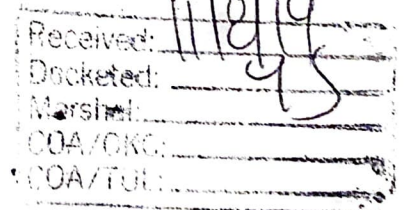 Received: 11/8/19
Docketed: 
Marshal:
COA/OKC:
COA/TUL: